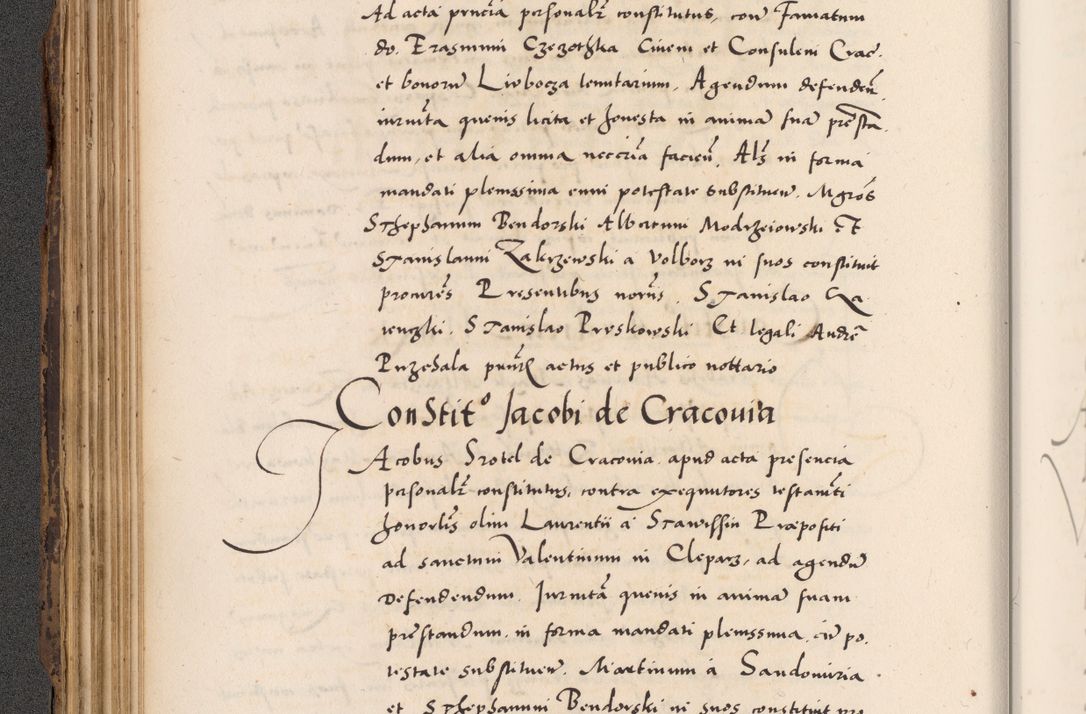 Ad acta prncia personalr constitutus, con Famatum
do. Erasmum Czeczothka Civem et Consulem Crac.
et bonoru Liobocza tenutarium. Agendum defenden
iurnta quenis licita et honesta in anima sua presta
dum, et alia omnia nccria facien. Als in forma
mandati plenissima cum potestate substituen. Mgros
Sthephanum Bendorski Albertum Modrzeiowski et
Stanislaum Zakrzewski a Volborz in suos constituit
procures Presentibus noriis. Stanislao Ra
wenczki. Stanislao Preskowski Et legali Andre
Puzehala pnntr actus et publico nottario
Constit° Jacobi de Cracouia
JAcobus Srotel de Cracouia. apud acta presencia
personalr constitutus, contra exequutores testamti
honorlis olim Laurentii a Stawissin Præpositi
ad sanctum Valentinum in Clepars, ad agendu
Defendendum. Jurnta quenis in anima suam
prestandum. in forma mandati plenissima, cu po.
testate substituen. Martinum a Sandomiria
et Sthephanum Bendorski in suos constituit pro